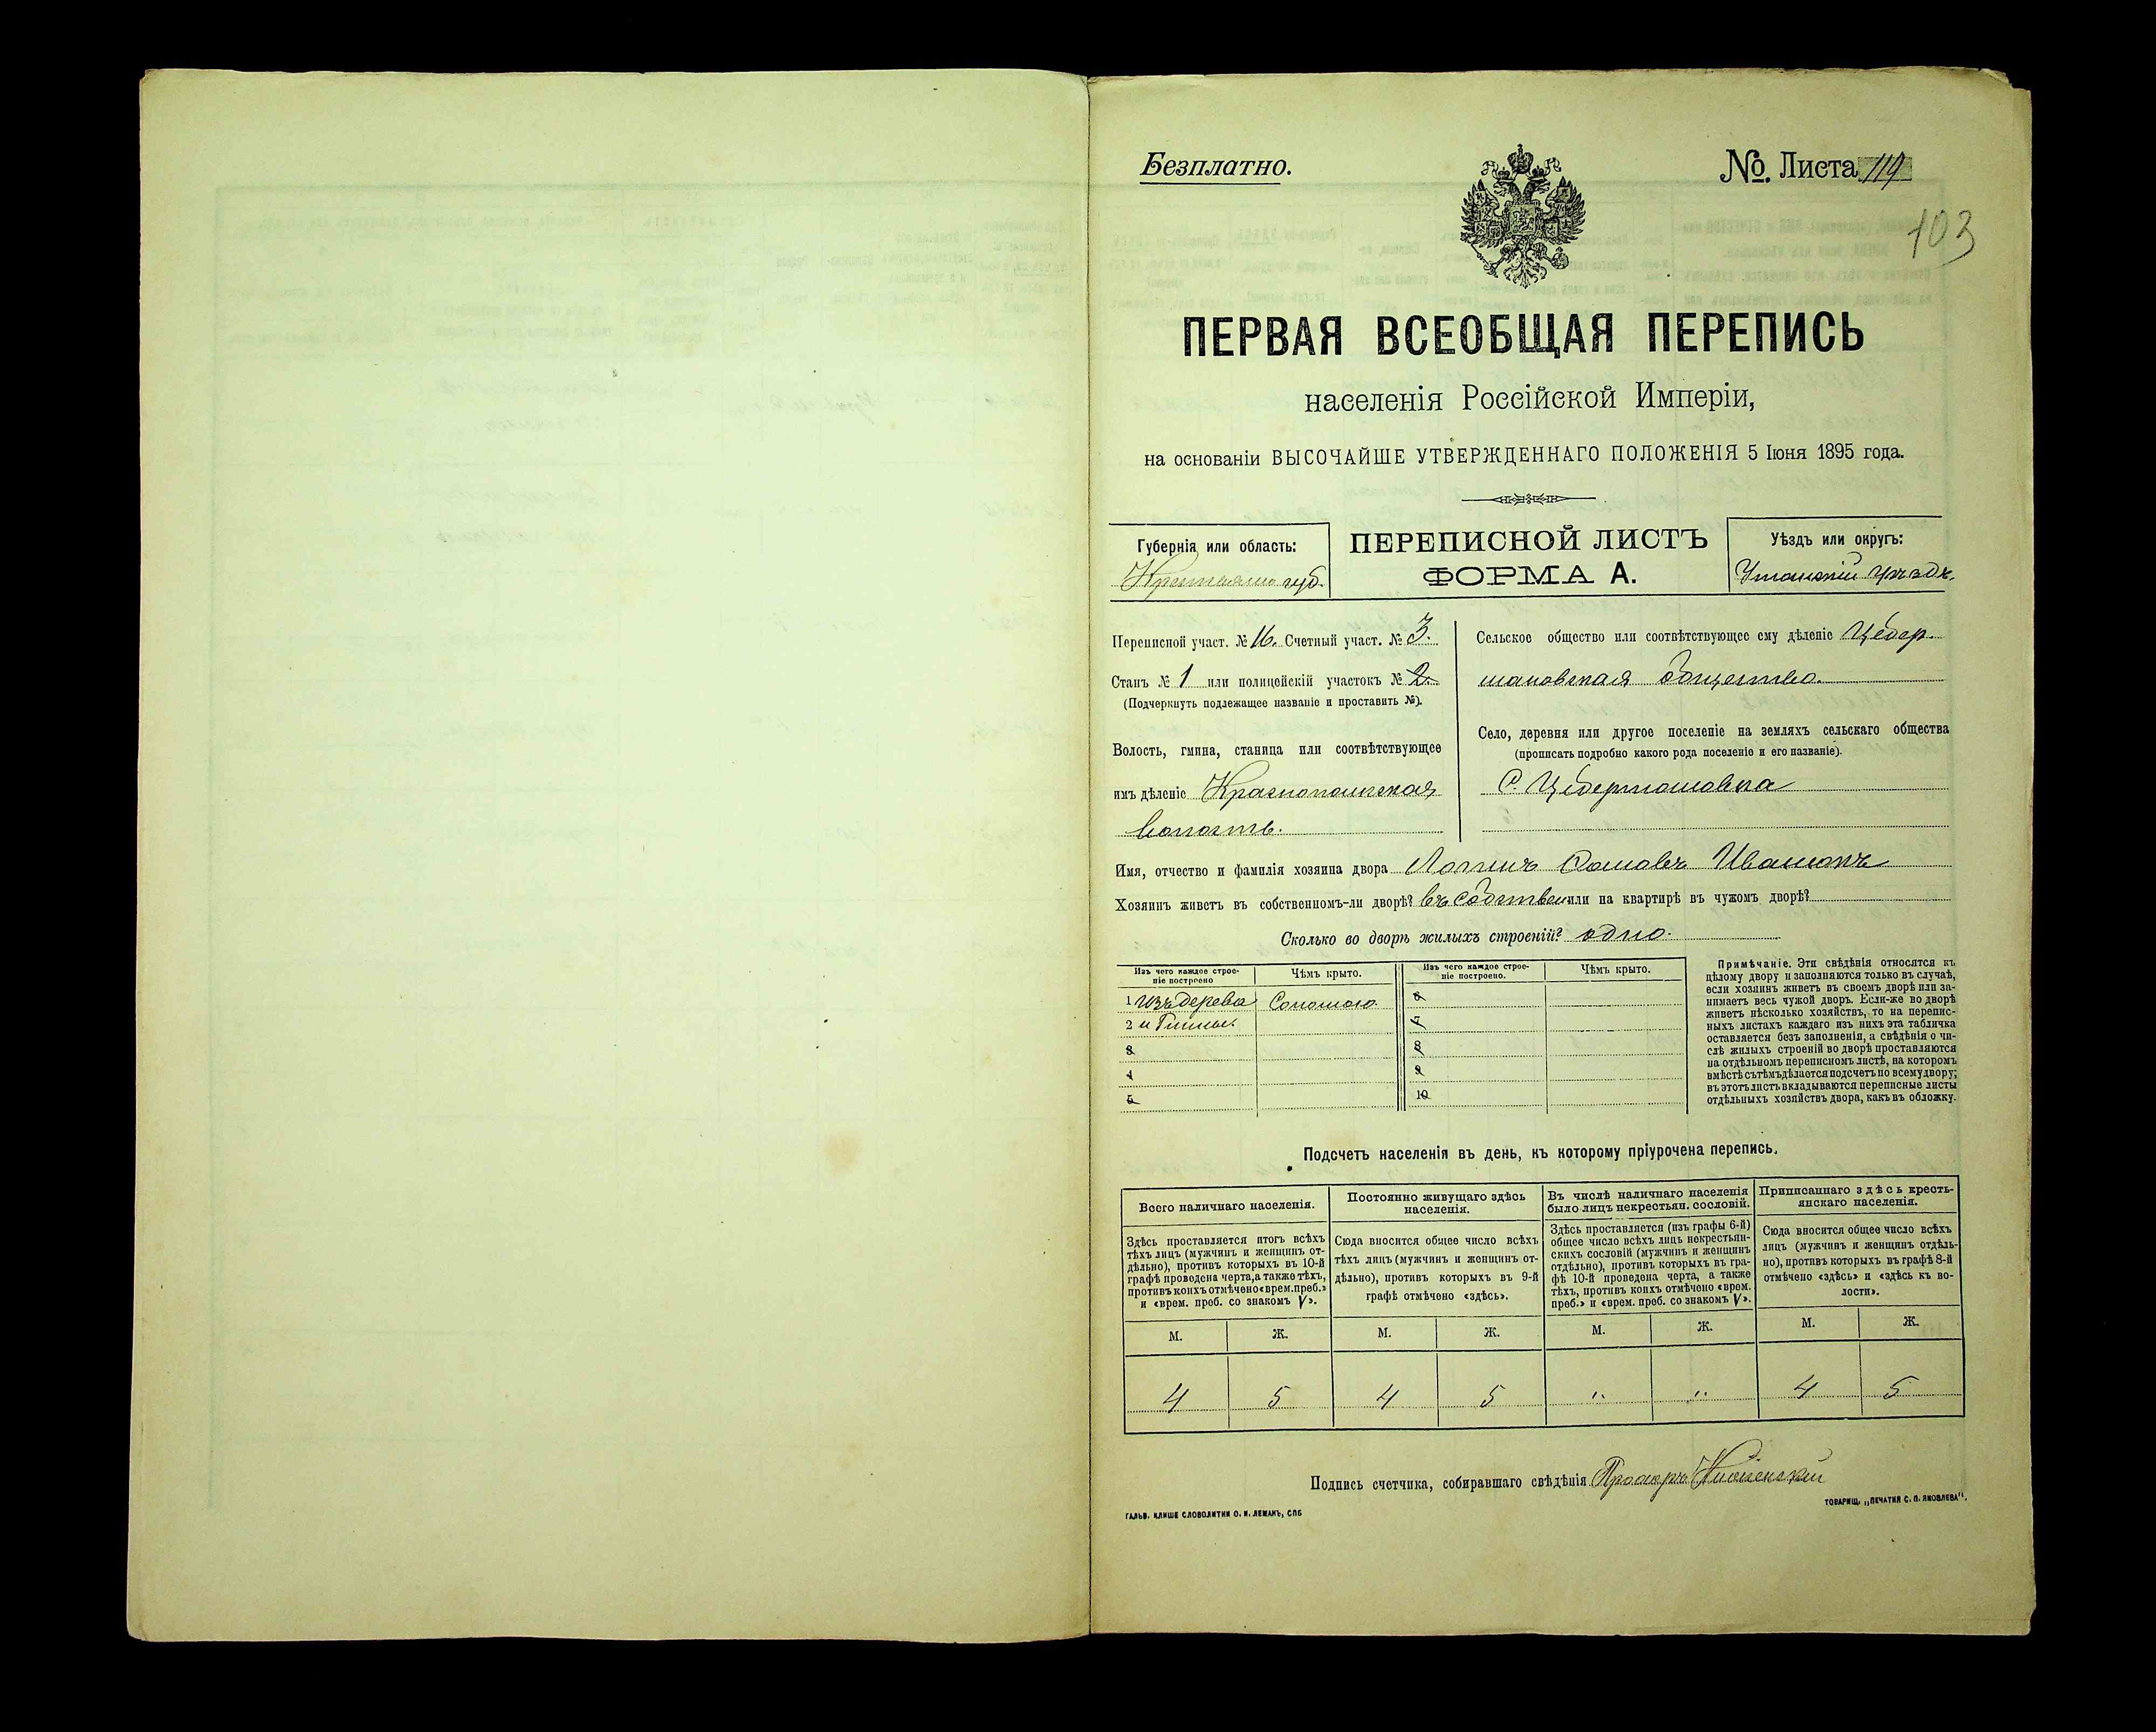 Безплатно.
№. Листа 119
103
ПЕРВАЯ ВСЕОБЩАЯ ПЕРЕПИСЬ
населенія Россійской Имперіи,
на основаніи ВЫСОЧАЙШЕ УТВЕРЖДЕННАГО ПОЛОЖЕНІЯ 5 Іюня 1895 года.
Губернія или область:
губ.
ПЕРЕПИСНОЙ ЛИСТЪ
ФОРМА А.
Уѣздъ или округъ:
Уманскій уѣздъ.
Переписной участ. № 16. Счетный участ. № 3.
Станъ № 1 или полицейскій участокъ № 2.
(Подчеркнуть подлежащее названіе и проставить №).
Волость, гмина, станица или соотвѣтствующее
имъ дѣленіе Краснопольская
волость.
Сельское общество или соотвѣтствующее ему дѣленіе Цебер
мановское общество.
Село, деревня или другое поселеніе на земляхъ сельскаго общества
(прописать подробно какого рода поселеніе и его названіе).
С. Цебермановка
Имя, отчество и фамилія хозяина двора Логинъ Иващукъ
Хозяинъ живетъ въ собственномъ-ли дворѣ? въ собствен или на квартирѣ въ чужомъ дворѣ?
Сколько во дворѣ жилыхъ строеній? одно.
Изъ чего каждое строе-
ніе построено
Чѣмъ крыто.
Изъ чего каждое строе-
ніе построено.
Чѣмъ крыто.
1 изъ дерева Соломою 6
2 и Глины. 7
3 8
4 9
5 10
Примѣчаніе. Эти свѣдѣнія относятся къ
цѣлому двору и заполняются только въ случаѣ,
если хозяинъ живетъ въ своемъ дворѣ или за-
нимаетъ весь чужой дворъ. Если-же во дворѣ
живетъ нѣсколько хозяйствъ, то на перепис-
ныхъ листахъ каждаго изъ нихъ эта табличка
оставляется безъ заполненія, а свѣдѣнія о чи-
слѣ жилыхъ строеній во дворѣ проставляются
на отдѣльномъ переписномъ листѣ, на которомъ
вмѣстѣ съ тѣмъ дѣлается подсчетъ по всему двору;
въ этотъ листъ вкладываются переписные листы
отдѣльныхъ хозяйствъ двора, какъ въ обложку.
Подсчетъ населенія въ день, къ которому пріурочена перепись.
Всего наличнаго населенія.
Здѣсь проставляется итогъ всѣхъ
тѣхъ лицъ (мужчинъ и женщинъ от-
дѣльно), противъ которыхъ въ 10-й
графѣ проведена черта, а также тѣхъ,
противъ коихъ отмѣчено «врем. преб.»
и «врем. преб. со знакомъ V».
Постоянно живущаго здѣсь
населенія.
Сюда вносится общее число всѣхъ
тѣхъ лицъ (мужчинъ и женщинъ от-
дѣльно), противъ которыхъ въ 9-й
графѣ отмѣчено «здѣсь».
Въ числѣ наличнаго населенія
было лицъ некрестьян. сословій.
Здѣсь проставляется (изъ графы 6-й)
общее число всѣхъ лицъ некрестьян-
скихъ сословій (мужчинъ и женщинъ
отдѣльно), противъ которыхъ въ гра-
фѣ 10-й проведена черта, а также
тѣхъ, противъ коихъ отмѣчено «врем.
преб.» и «врем. преб. со знакомъ V».
Приписаннаго здѣсь кресть-
янскаго населенія.
Сюда вносится общее число всѣхъ
лицъ (мужчинъ и женщинъ отдѣль-
но), противъ которыхъ въ графѣ 8-й
отмѣчено «здѣсь» и «здѣсь къ во-
лости».
М. Ж. М. Ж. М. Ж. М. Ж.
4 5 4 5 " " 4 5
Подпись счетчика, собиравшаго свѣдѣнія
ГАЛЬВ. КЛИШЕ СЛОВОЛИТНИ О. И. ЛЕМАНЪ, СПБ
ТОВАРИЩ. „ПЕЧАТНЯ С. П. ЯКОВЛЕВА".